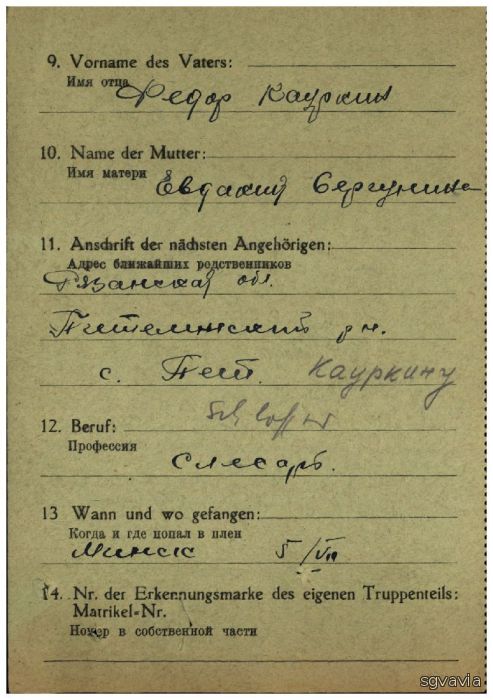 9. Vorname des Vaters:
Имя отца
Федор Кауркин
10. Name der Mutter:
Имя матери
Евдакий
11. Anschrift der nächsten Angehörigen:
Адрес ближайших родственников
Рязанская обл.
Пителинский рн.
с. Пет. Кауркину
Schlosser
12. Beruf:
Профессия
Слесарь.
13 Wann und wo gefangen:
Когда и где попал в плен
Минск 5/VII
14. Nr. der Erkennungsmarke des eigenen Truppenteils:
Matrikel-Nr.
Номер в собственной части
sgvavia